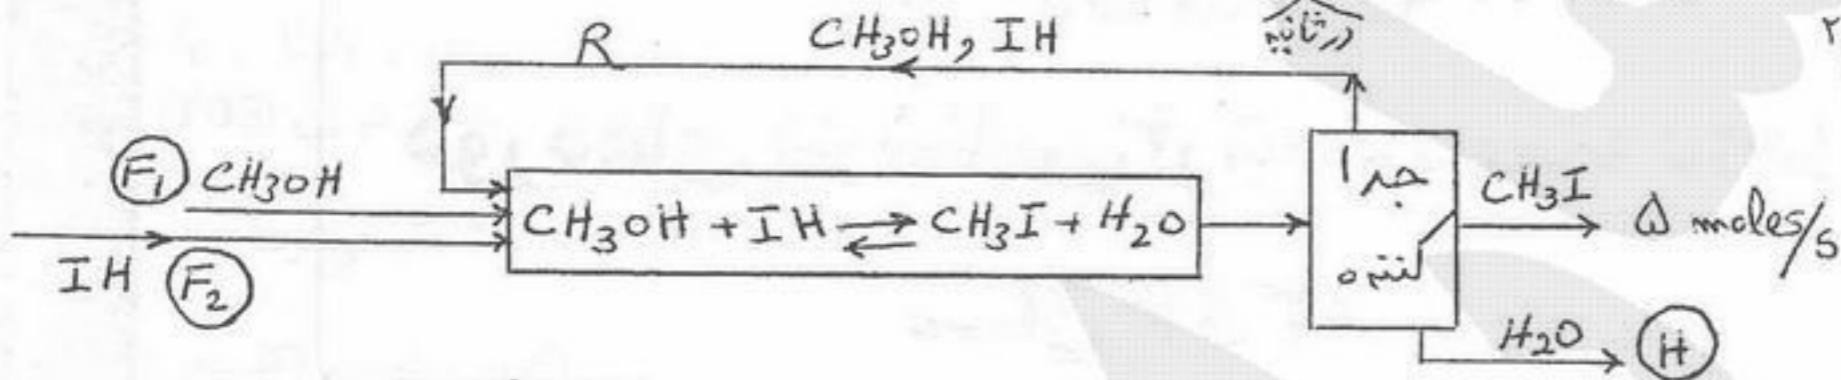 R CH₃OH, IH درثانیه ۲
F₁ CH₃OH
CH₃OH + IH ⇌ CH₃I + H₂O
جدا
کننده
CH₃I
۵ moles/s
IH F₂
H₂O H